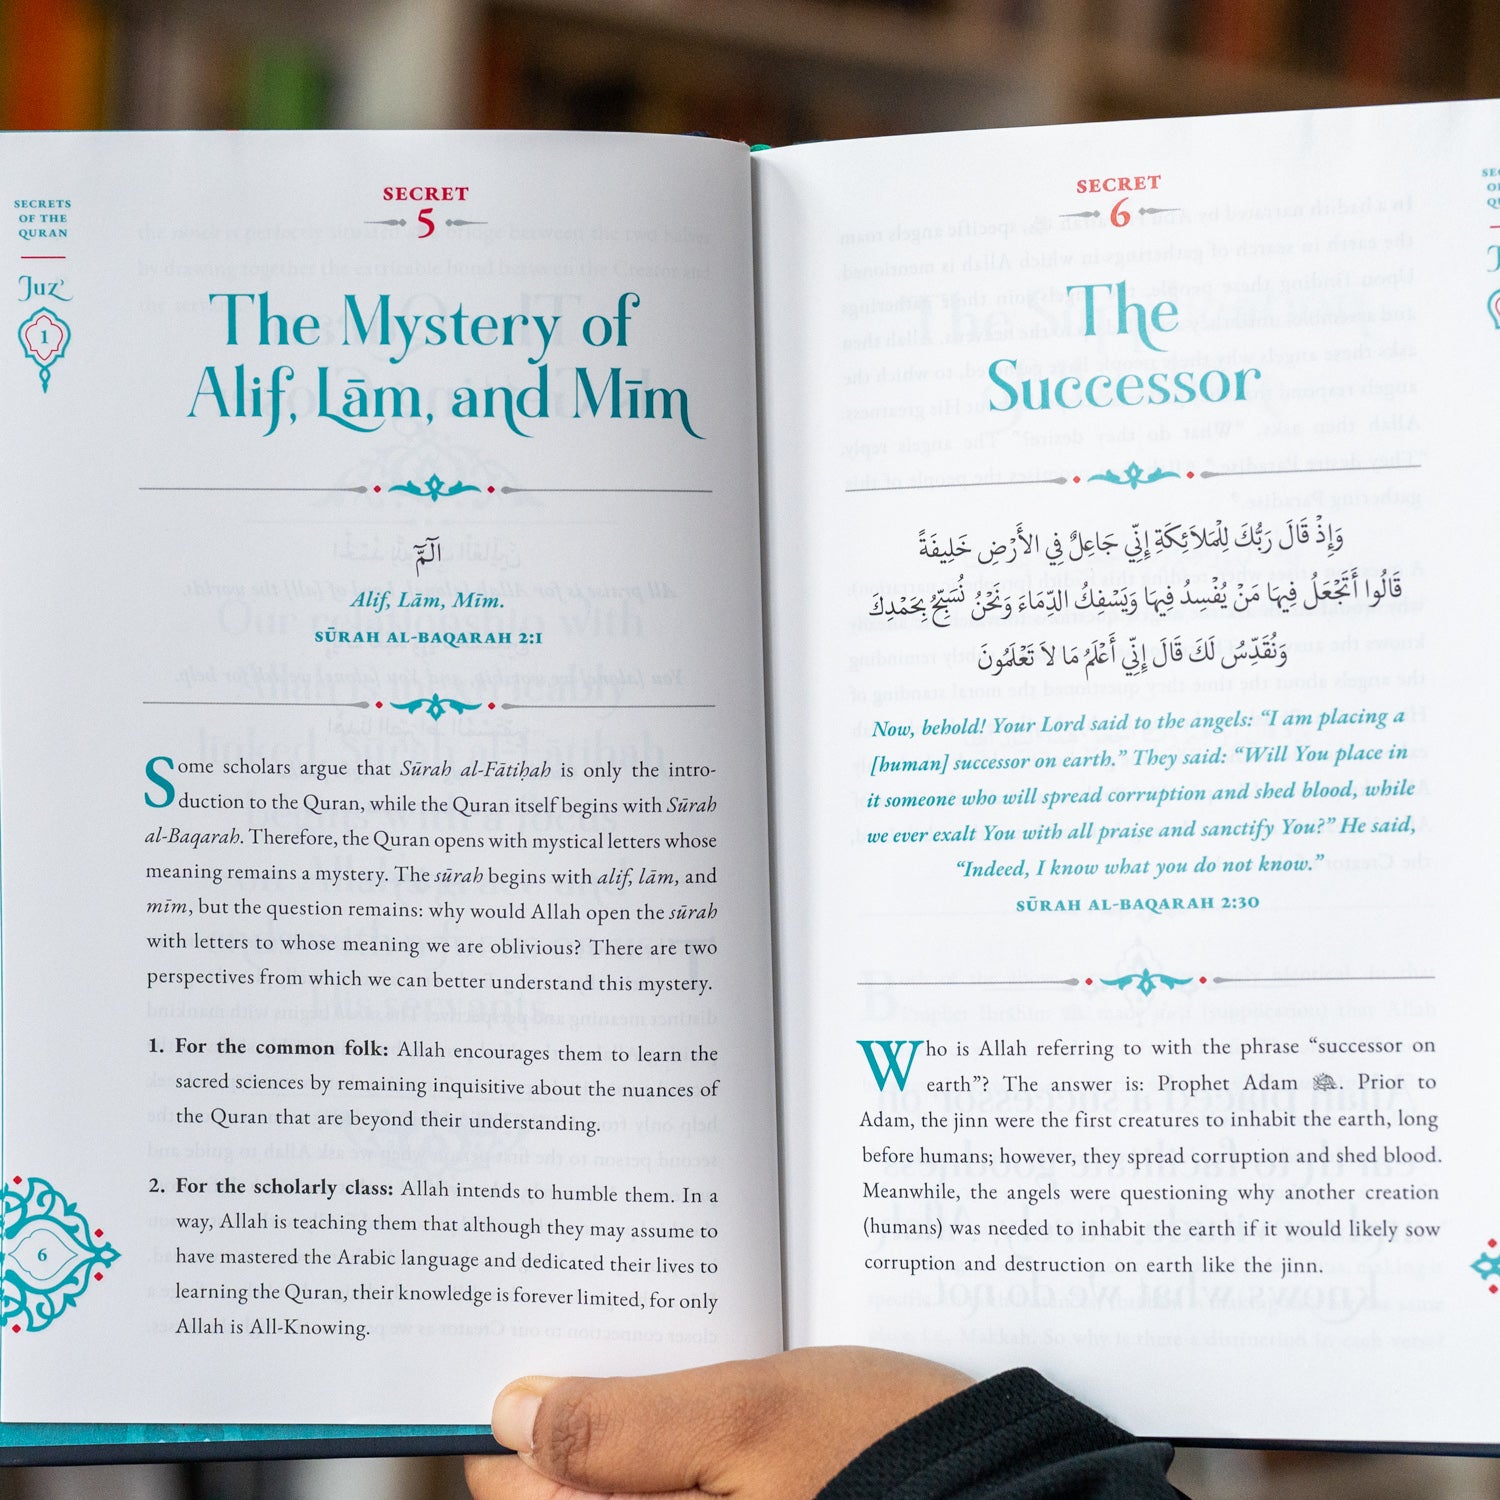 SECRETS
OF THE
QURAN
Juz’
1
SECRET
5
The Mystery of
Alif, Lām, and Mīm
الٓمٓ
Alif, Lām, Mīm.
SŪRAH AL-BAQARAH 2:1
Some scholars argue that Sūrah al-Fātiḥah is only the intro-
duction to the Quran, while the Quran itself begins with Sūrah
al-Baqarah. Therefore, the Quran opens with mystical letters whose
meaning remains a mystery. The sūrah begins with alif, lām, and
mīm, but the question remains: why would Allah open the sūrah
with letters to whose meaning we are oblivious? There are two
perspectives from which we can better understand this mystery.
1. For the common folk: Allah encourages them to learn the
sacred sciences by remaining inquisitive about the nuances of
the Quran that are beyond their understanding.
2. For the scholarly class: Allah intends to humble them. In a
way, Allah is teaching them that although they may assume to
have mastered the Arabic language and dedicated their lives to
learning the Quran, their knowledge is forever limited, for only
Allah is All-Knowing.
6
SECRET
6
The
Successor
وَإِذْ قَالَ رَبُّكَ لِلْمَلَائِكَةِ إِنِّي جَاعِلٌ فِي الأَرْضِ خَلِيفَةً
قَالُوا أَتَجْعَلُ فِيهَا مَنْ يُفْسِدُ فِيهَا وَيَسْفِكُ الدِّمَاءَ وَنَحْنُ نُسَبِّحُ بِحَمْدِكَ
وَنُقَدِّسُ لَكَ قَالَ إِنِّي أَعْلَمُ مَا لَا تَعْلَمُونَ
Now, behold! Your Lord said to the angels: “I am placing a
[human] successor on earth.” They said: “Will You place in
it someone who will spread corruption and shed blood, while
we ever exalt You with all praise and sanctify You?” He said,
“Indeed, I know what you do not know.”
SŪRAH AL-BAQARAH 2:30
Who is Allah referring to with the phrase “successor on
earth”? The answer is: Prophet Adam . Prior to
Adam, the jinn were the first creatures to inhabit the earth, long
before humans; however, they spread corruption and shed blood.
Meanwhile, the angels were questioning why another creation
(humans) was needed to inhabit the earth if it would likely sow
corruption and destruction on earth like the jinn.